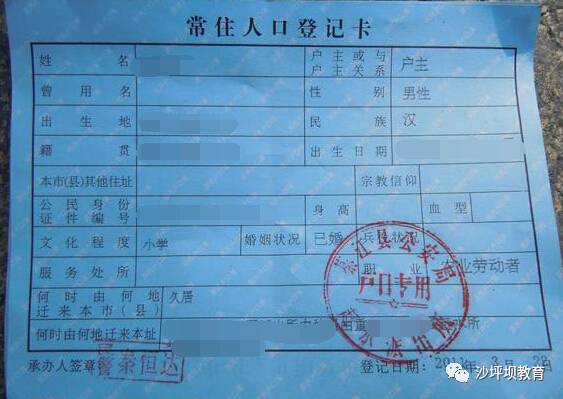 常住人口登记卡
姓名 户主或与户主关系 户主
曾用名 性别 男性
出生地 民族 汉
籍贯 出生日期
本市(县)其他住址 宗教信仰
公民身份证件编号 身高 血型
文化程度 小学 婚姻状况 已婚 兵役状况
服务处所 职业 农业劳动者
何时由何地迁来本市(县) 久居
何时由何地迁来本址
江县公安局
户口专用
承办人签章: 秦恒达
登记日期: 2011 3 29
沙坪坝教育